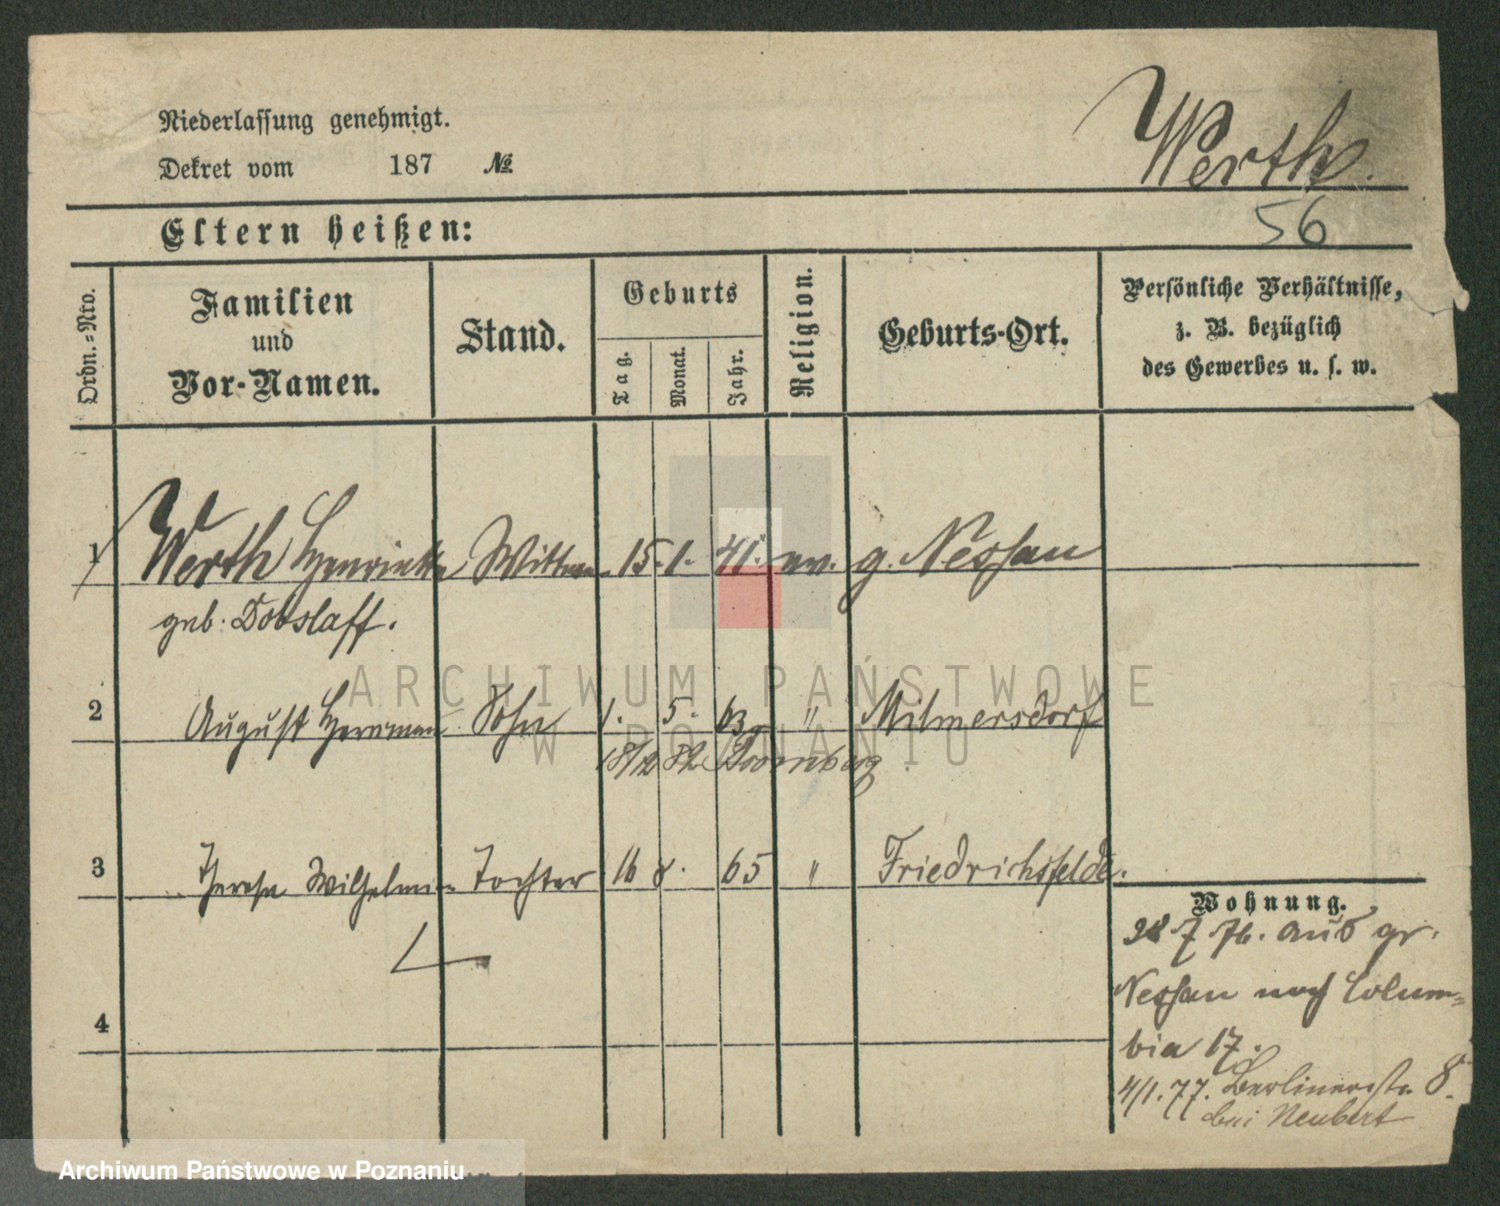 Niederlassung genehmigt.
Dekret vom 187 №
Werth.
56
Eltern heißen:
Ordn.-Nro.
Familien
und
Vor-Namen.
Stand.
Geburts
Tag.
Monat.
Jahr.
Religion.
Geburts-Ort.
Persönliche Verhältnisse,
z. B. bezüglich
des Gewerbes u. s. w.
1 Werth Henriette Wittwe 15. 1. 41. ev. g. Nessau
geb. Dobslaff.
2 August Herrman Sohn 1. 5. 63 " Wilmersdorf
82 Bromberg
3 Therese Wilhelmine Tochter 16 8. 65 " Friedrichsfelde.
4
Wohnung.
28 7 76. aus gr.
Nessau nach Colum-
bia 17.
4/1. 77. Berlinerstr. 8.
bei Neubert
ARCHIWUM PAŃSTWOWE
W POZNANIU
Archiwum Państwowe w Poznaniu